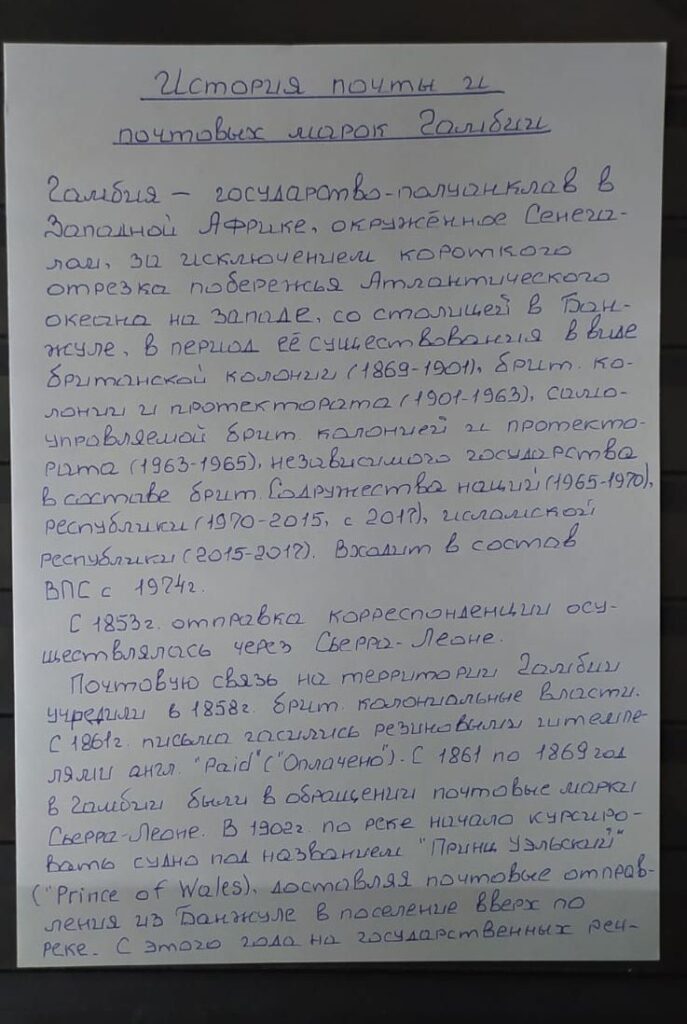 История почты и
почтовых марок Гамбии
Гамбия – государство-полуанклав в
Западной Африке, окружённое Сенега-
лом, за исключением короткого
отрезка побережья Атлантического
океана на западе, со столицей в Бан-
жуле, в период её существования в виде
британской колонии (1869-1901), брит. ко-
лонии и протектората (1901-1963), само-
управляемой брит. колонией и протекто-
рата (1963-1965), независимого государства
в составе брит. Содружества наций (1965-1970),
республики (1970-2015, с 2017), исламской
республики (2015-2017). Входит в состав
ВПС с 1974г.
С 1853г. отправка корреспонденции осу-
ществлялась через Сьерра-Леоне.
Почтовую связь на территории Гамбии
учредили в 1858г. брит. колониальные власти.
С 1861г. письма гасились резиновыми штемпе-
лями англ. "Paid" ("Оплачено"). С 1861 по 1869 год
в Гамбии были в обращении почтовые марки
Сьерра-Леоне. В 1902г. по реке начало курсиро-
вать судно под названием "Принц Уэльский"
("Prince of Wales), доставляя почтовые отправ-
ления из Банжуле в поселение вверх по
реке. С этого года на государственных реч-